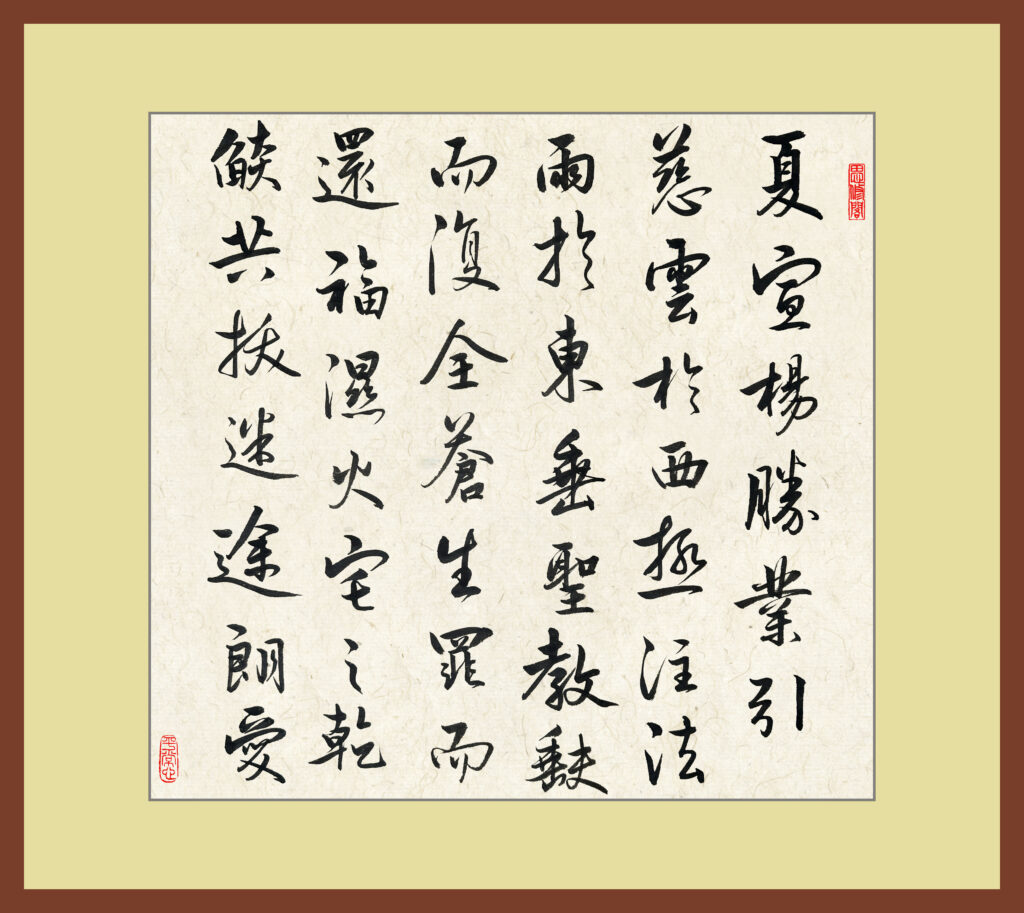 思修閣
夏宣楊勝業引
慈雲於西極注法
雨於東垂聖教缺
而復全蒼生罪而
還福濕火宅之乾
燄共拔迷途朗愛
平常心